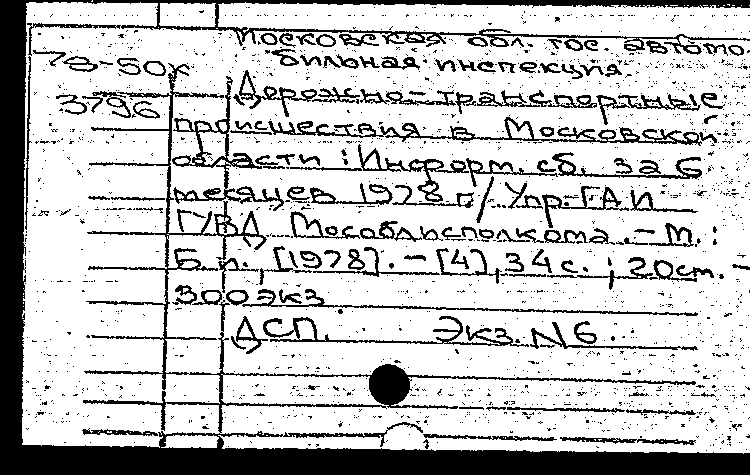 Московская обл. гос. автомо
78-50к бильная инспекция.
3796 Дорожно-транспортные
происшествия в Московской
области : Информ. сб. за 6
месяцев 1978 г. / Упр. ГАИ
ГУВД Мособлисполкома. - М. :
Б. и., [1978]. - [4], 34 с. ; 20 см. -
300 экз.
ДСП. Экз. N 6.